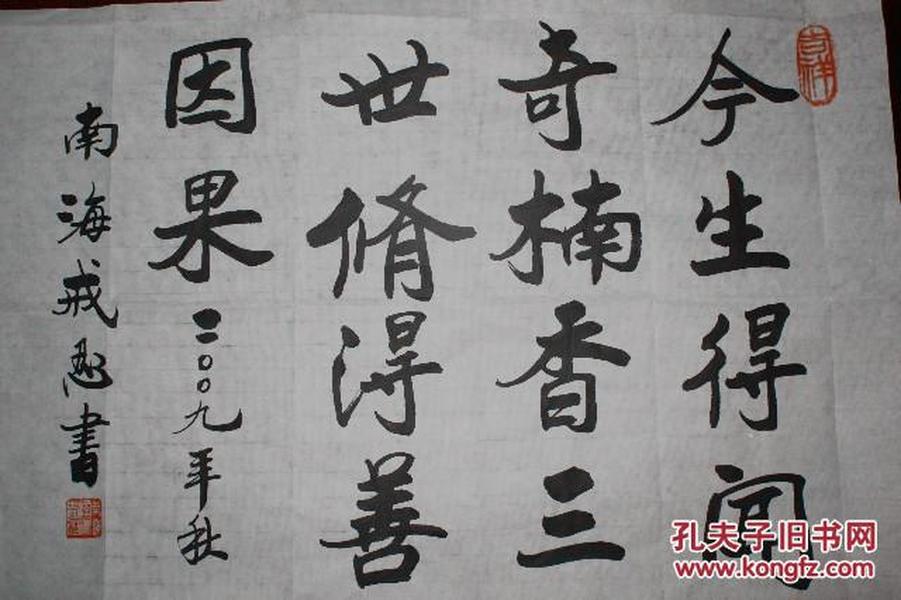 吉祥
今生得闻
奇楠香三
世脩得善
因果二〇〇九年秋
南海戒忍書
孔夫子旧书网
www.kongfz.com